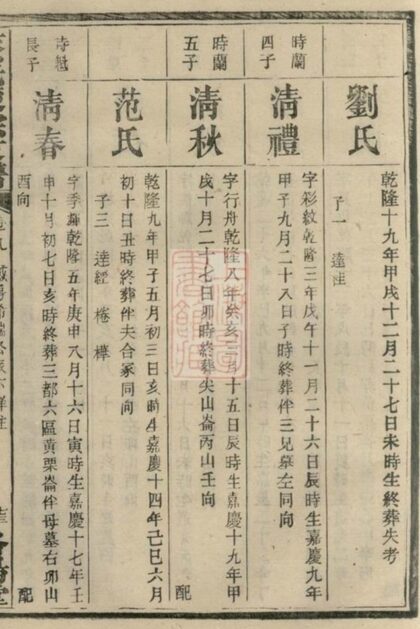 劉氏
乾隆十九年甲戌十二月二十七日未時生終葬失考
子一
時蘭四子
清禮
字彩紋乾隆三年戊午十一月二十六日辰時生嘉慶九年
甲子九月二十八日子時終葬伴三兄墓左同向
時蘭五子
清秋
字行舟乾隆八年癸亥三月十五日辰時生嘉慶十九年甲
戌十月二十七日卯時終葬尖山崙丙山壬向
配
范氏
乾隆九年甲子五月初三日亥時生嘉慶十四年己巳六月
初十日丑時終葬伴夫合冢同向
子三 達經 棬 樺
長子
清春
字季 乾隆五年庚申八月十六日寅時生嘉慶十七年壬
申十月初七日亥時終葬三都六區黄栗崙伴母墓右卯山
酉向
配